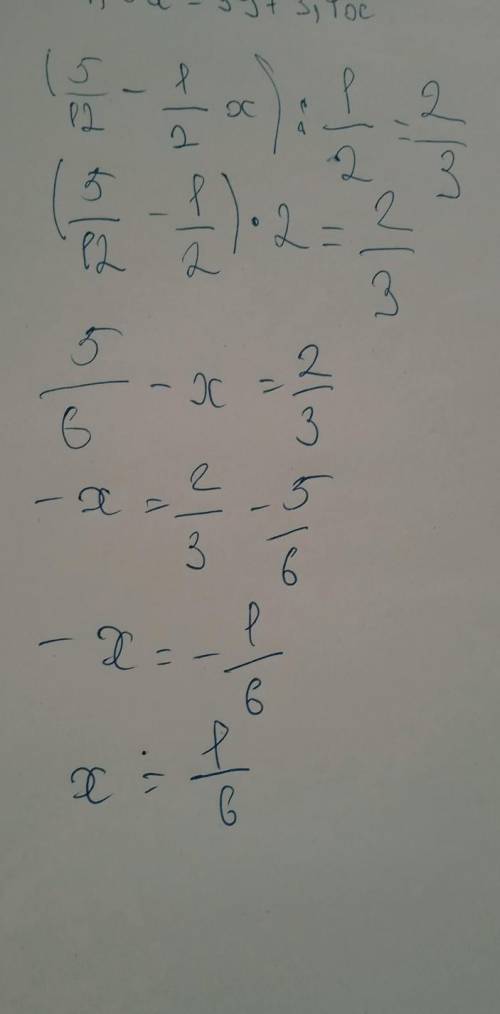 (5/12 - 1/2 x) : 1/2 = 2/3
(5/12 - 1/2) · 2 = 2/3
5/6 - x = 2/3
- x = 2/3 - 5/6
- x = - 1/6
x = 1/6